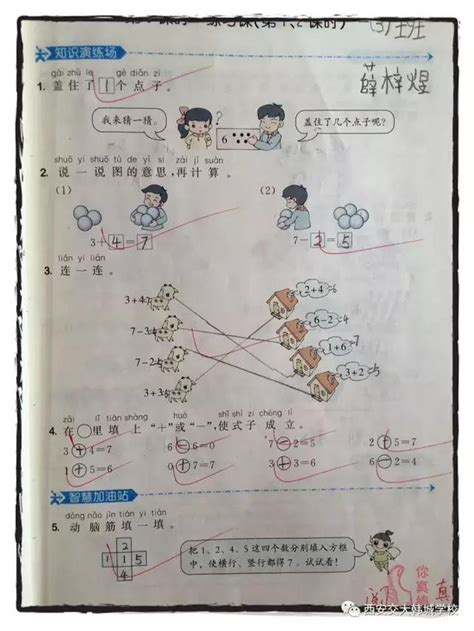 练习课(第1、2课时)
(3)班
薛梓煜
知识演练场
gài zhù le gè diǎn zi
1. 盖住了1个点子。
我来猜一猜。
6
盖住了几个点子呢?
shuō yi shuō tú de yì si zài jì suàn
2. 说一说图的意思,再计算。
(1)
(2)
3+4=7
7-2=5
lián yi lián
3. 连一连。
3+4
2+4 6
7-3
6-2 4
7-2
1+6 7
3+3
3+2 5
zài lǐ tián shàng huò shǐ shì zi chéng lì
4. 在○里填上“+”或“-”,使式子成立。
3+4=7 6-6=0 7-2=5 6-2=4
1+5=6 0+7=7 3+3=6 4+2=6
智慧加油站
dòng nǎo jīn tián yi tián
5. 动脑筋填一填。
2
1 1 5
4
把1、2、4、5这四个数分别填入方框
中,使横行、竖行都得7。试试看!
你真棒
真
西安交大韩城学校